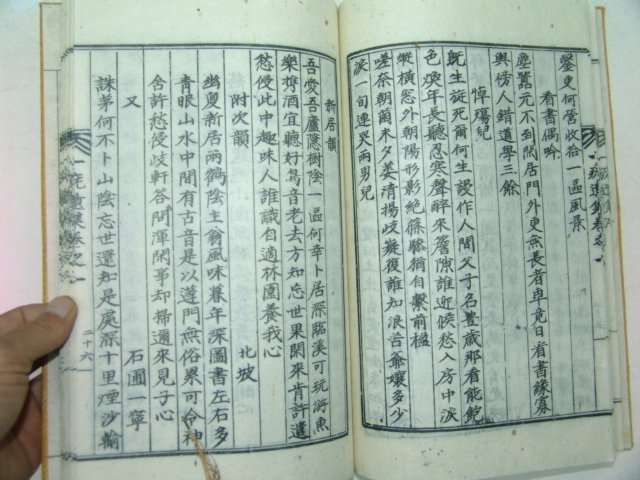 鑿更何嘗收拾一區風景
看書偶吟
塵囂元不到閑居門外更無長者車竟日看書緣寡
與傍人錯道學三餘
悼殤兒
旣生旋死爾何生謾作人間父子名豊歲那看能飽
色煖年長聽忍寒聲醉來簷隙誰近候愁入房中淚
縱橫窓外朝陽形影絶條縣猶自繫前楹
哇奈朝爾來夕委淸揚岐嶷復誰知浪苦爺孃多少
淚一旬連哭兩男兒
新居韻
吾愛吾廬隱樹陰一區何幸卜居深臨溪可玩游魚
樂携酒宜聽好鳥音老去方知忘世果閑來肯許遣
愁侵此中趣味人誰識自適林園養我心
附次韻 北坡
幽夐新居兩鶴陰主翁風味暮年深圖書左右多
靑眼山水中間有古音是以蓬門無俗累可
舍許愁侵歧軒答問渾閑事却掃通來見子心
又 石圃一寧
誅茅何不卜山陰忘世還知是處深十里煙沙輸
二十六